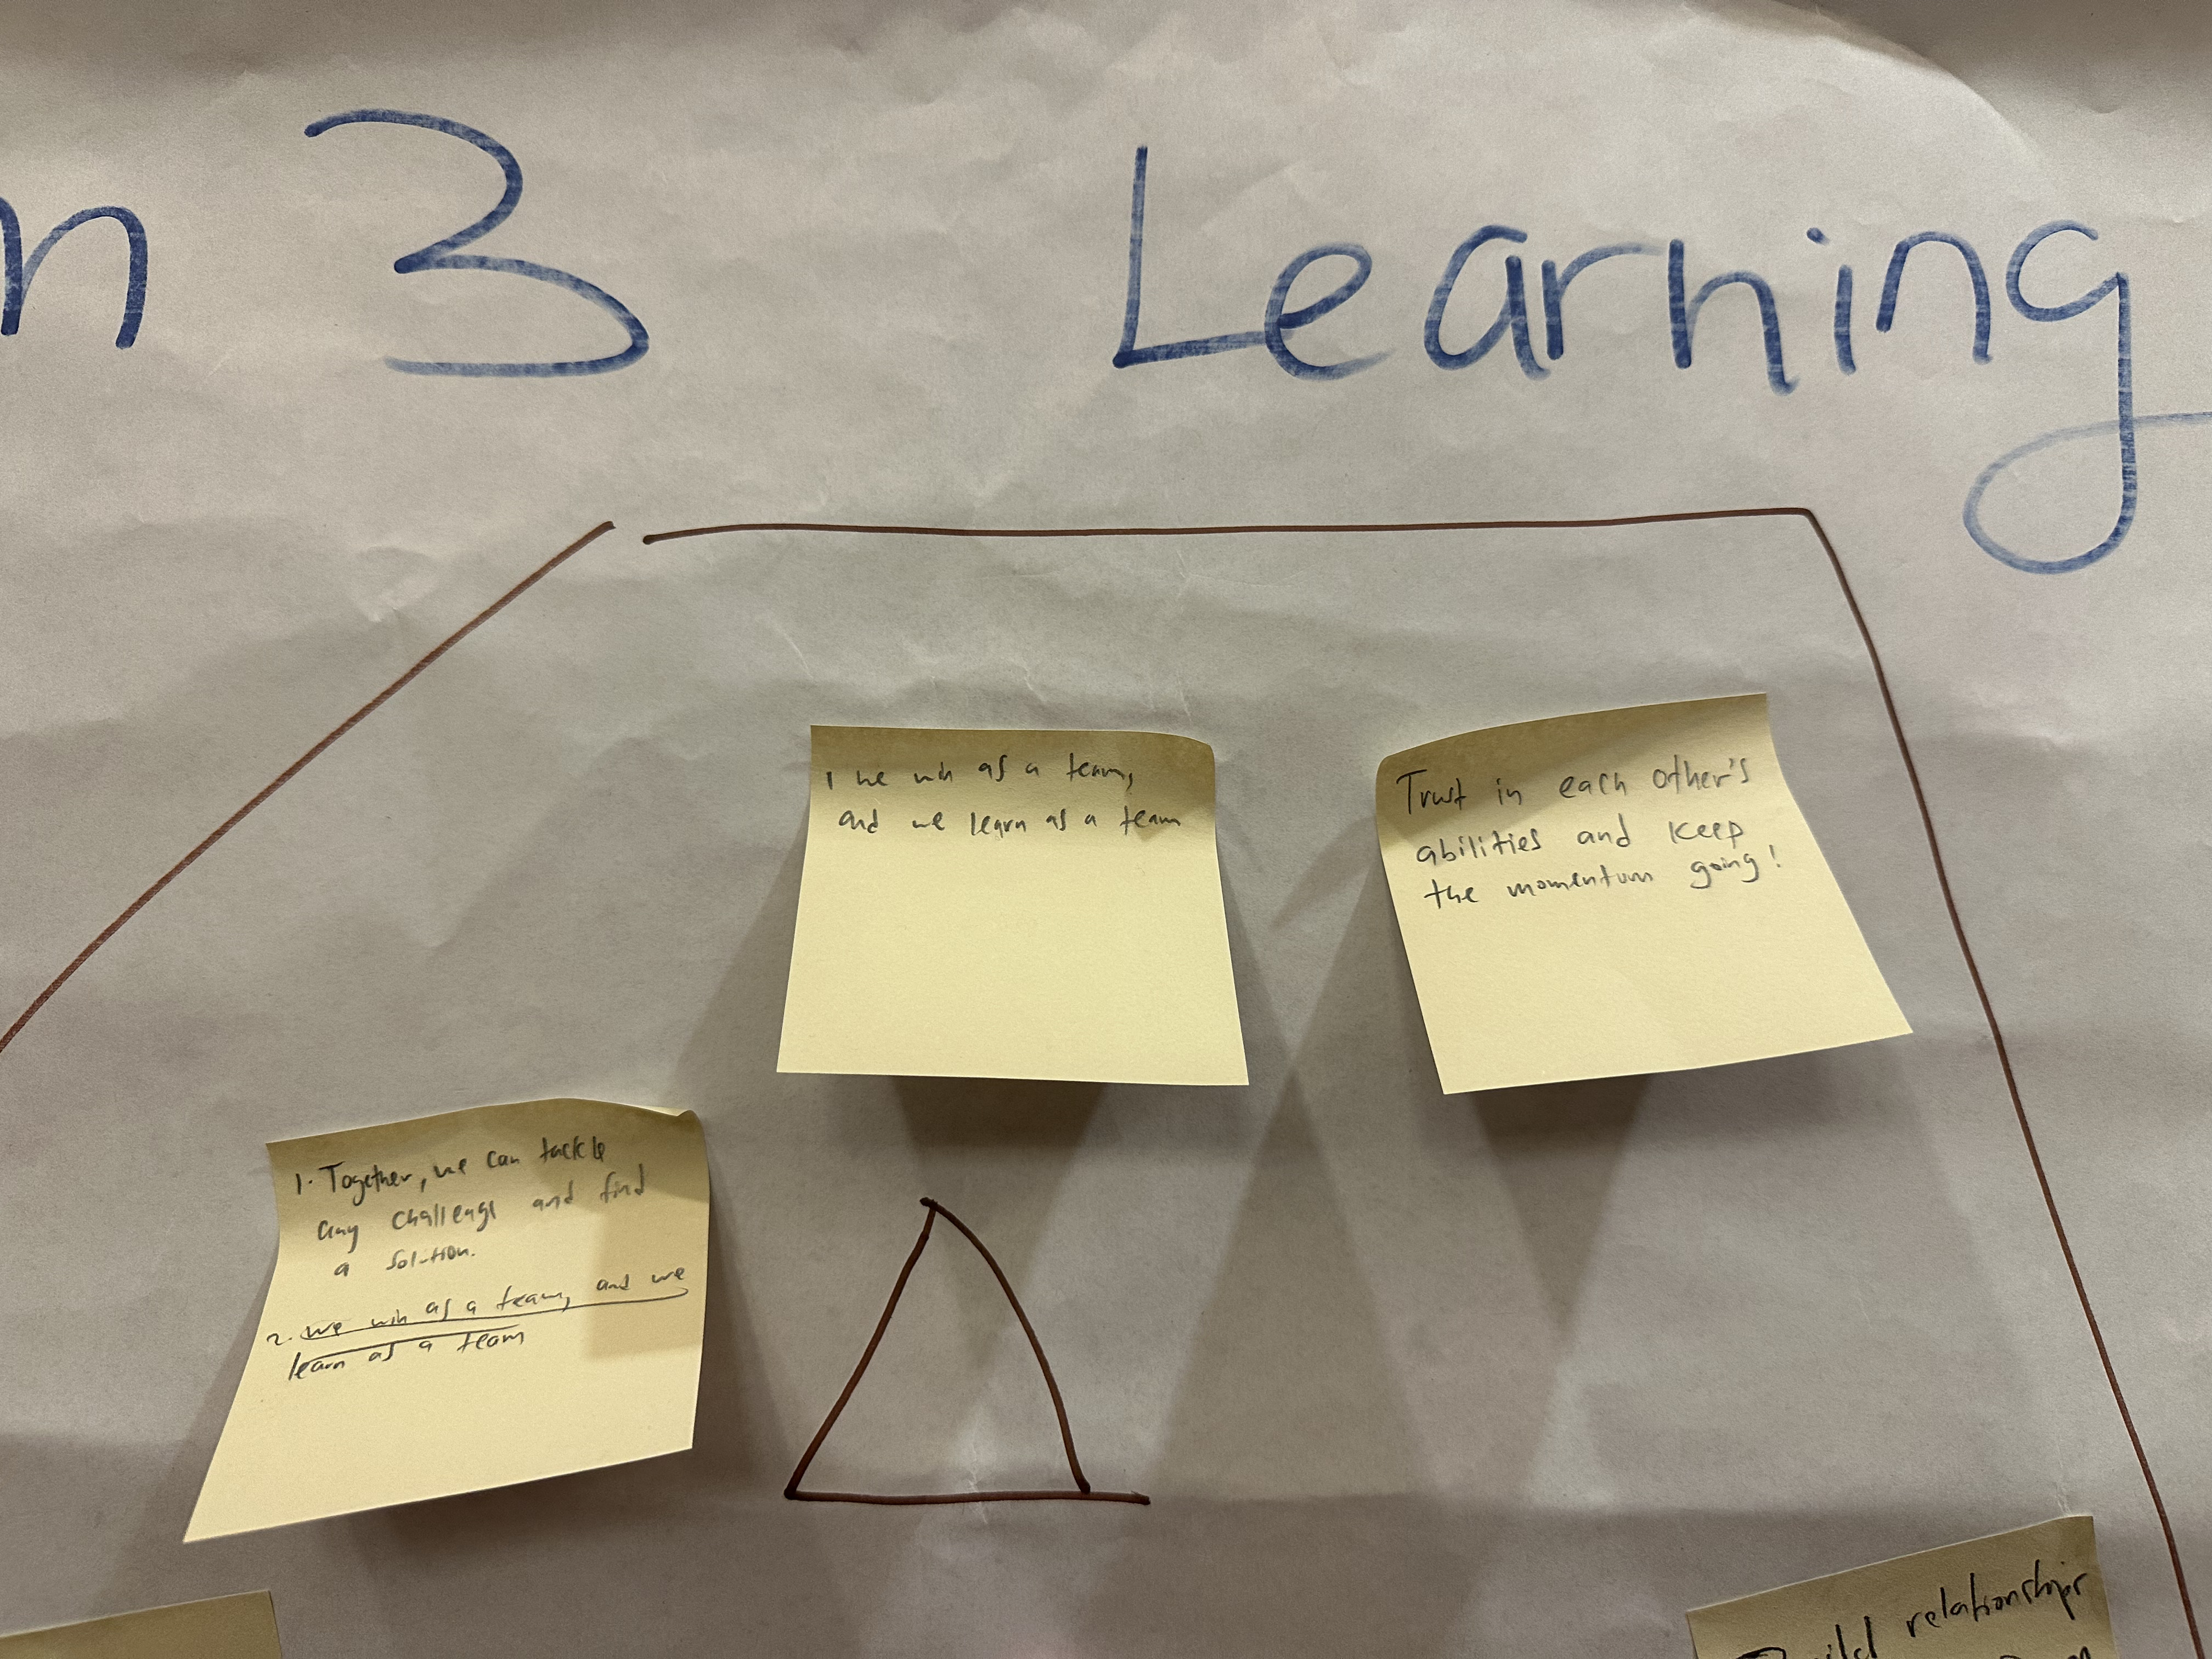 n 3 Learning
1 we win as a team,
and we learn as a team
Trust in each other's
abilities and keep
the momentum going!
1. Together, we can tackle
any challenge and find
a solution.
2. we win as a team, and we
learn as a team
Build relationships